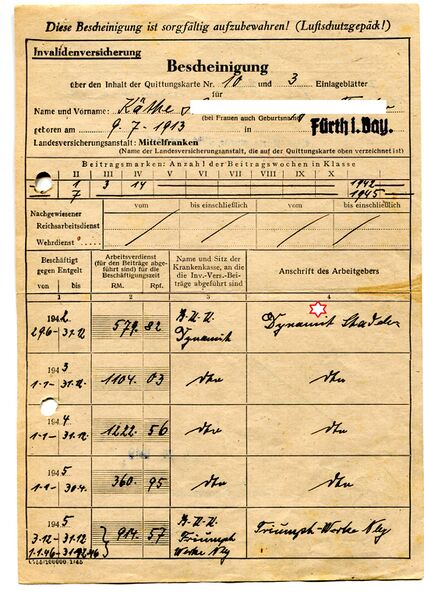 Diese Bescheinigung ist sorgfältig aufzubewahren! (Luftschutzgepäck!)
Invalidenversicherung
Bescheinigung
über den Inhalt der Quittungskarte Nr. 10 und 3 Einlageblätter
für
Name und Vorname: Käthe
(bei Frauen auch Geburtsname)
geboren am 9.7.1913 in Fürth i. Bay.
Landesversicherungsanstalt: Mittelfranken
(Name der Landesversicherungsanstalt, die auf der Quittungskarte oben verzeichnet ist)
Beitragsmarken: Anzahl der Beitragswochen in Klasse
II III IV V VI VII VIII IX X
1 3 14 1942
7 1945
vom bis einschließlich vom bis einschließlich
Nachgewiesener
Reichsarbeitsdienst
Wehrdienst
Beschäftigt gegen Entgelt
von bis
Arbeitsverdienst (für den die Beiträge abgeführt sind) für die Beschäftigungszeit
RM. Rpf.
Name und Sitz der Krankenkasse, an die die Inv.-Vers.-Beiträge abgeführt sind
Anschrift des Arbeitgebers
1 2 3 4
1942
29.6 - 31.12 579.82 Dynamit Dynamit Stadeln
1943
1.1 - 31.12. 1104.03 dto dto
1944.
1.1 - 31.12. 1222.56 dto dto
1945
1.1 - 30.4. 360.95 dto dto
1945
3.12 - 31.12 914.57 Triumph Werke Nbg Triumph-Werke Nbg
1.1.46 - 31.12.46